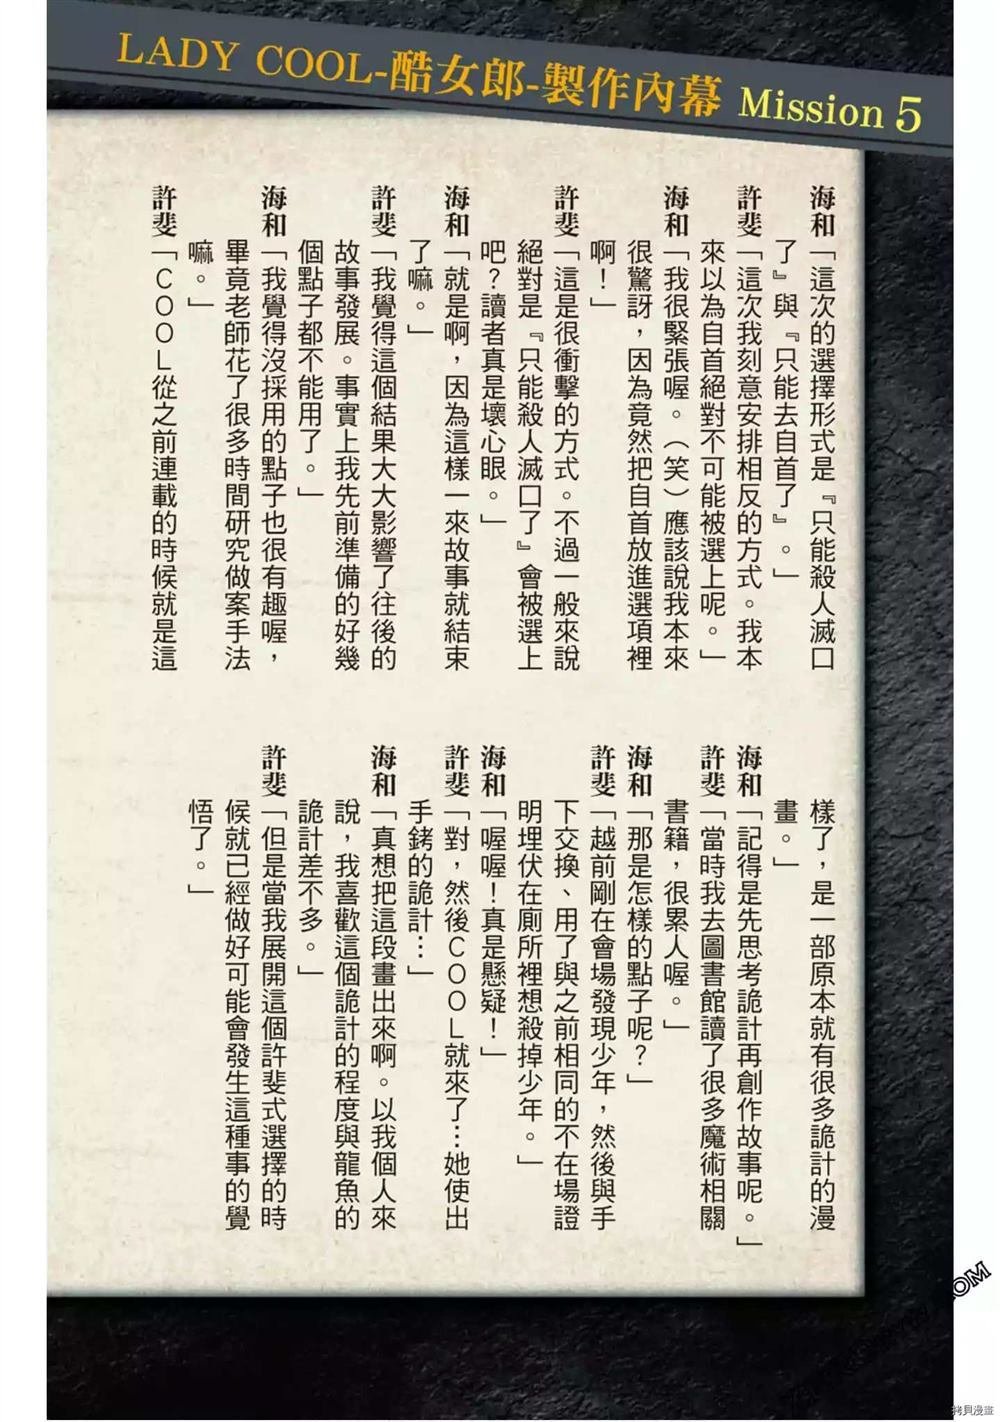 LADY COOL-酷女郎-製作內幕 Mission 5
海和「這次的選擇形式是『只能殺人滅口
了』與『只能去自首了』。」
許斐「這次我刻意安排相反的方式。我本
來以為自首絕對不可能被選上呢。」
海和「我很緊張喔。（笑）應該說我本來
很驚訝，因為竟然把自首放進選項裡
啊！」
許斐「這是很衝擊的方式。不過一般來說
絕對是『只能殺人滅口了』會被選上
吧？讀者真是壞心眼。」
海和「就是啊，因為這樣一來故事就結束
了嘛。」
許斐「我覺得這個結果大大影響了往後的
故事發展。事實上我先前準備的好幾
個點子都不能用了。」
海和「我覺得沒採用的點子也很有趣喔，
畢竟老師花了很多時間研究做案手法
嘛。」
許斐「COOL從之前連載的時候就是這
樣了，是一部原本就有很多詭計的漫
畫。」
海和「記得是先思考詭計再創作故事呢。」
許斐「當時我去圖書館讀了很多魔術相關
書籍，很累人喔。」
海和「那是怎樣的點子呢？」
許斐「越前剛在會場發現少年，然後與手
下交換、用了與之前相同的不在場證
明埋伏在廁所裡想殺掉少年。」
海和「喔喔！真是懸疑！」
許斐「對，然後COOL就來了…她使出
手銬的詭計…」
海和「真想把這段畫出來啊。以我個人來
說，我喜歡這個詭計的程度與龍魚的
詭計差不多。」
許斐「但是當我展開這個許斐式選擇的時
候就已經做好可能會發生這種事的覺
悟了。」
拷貝漫畫